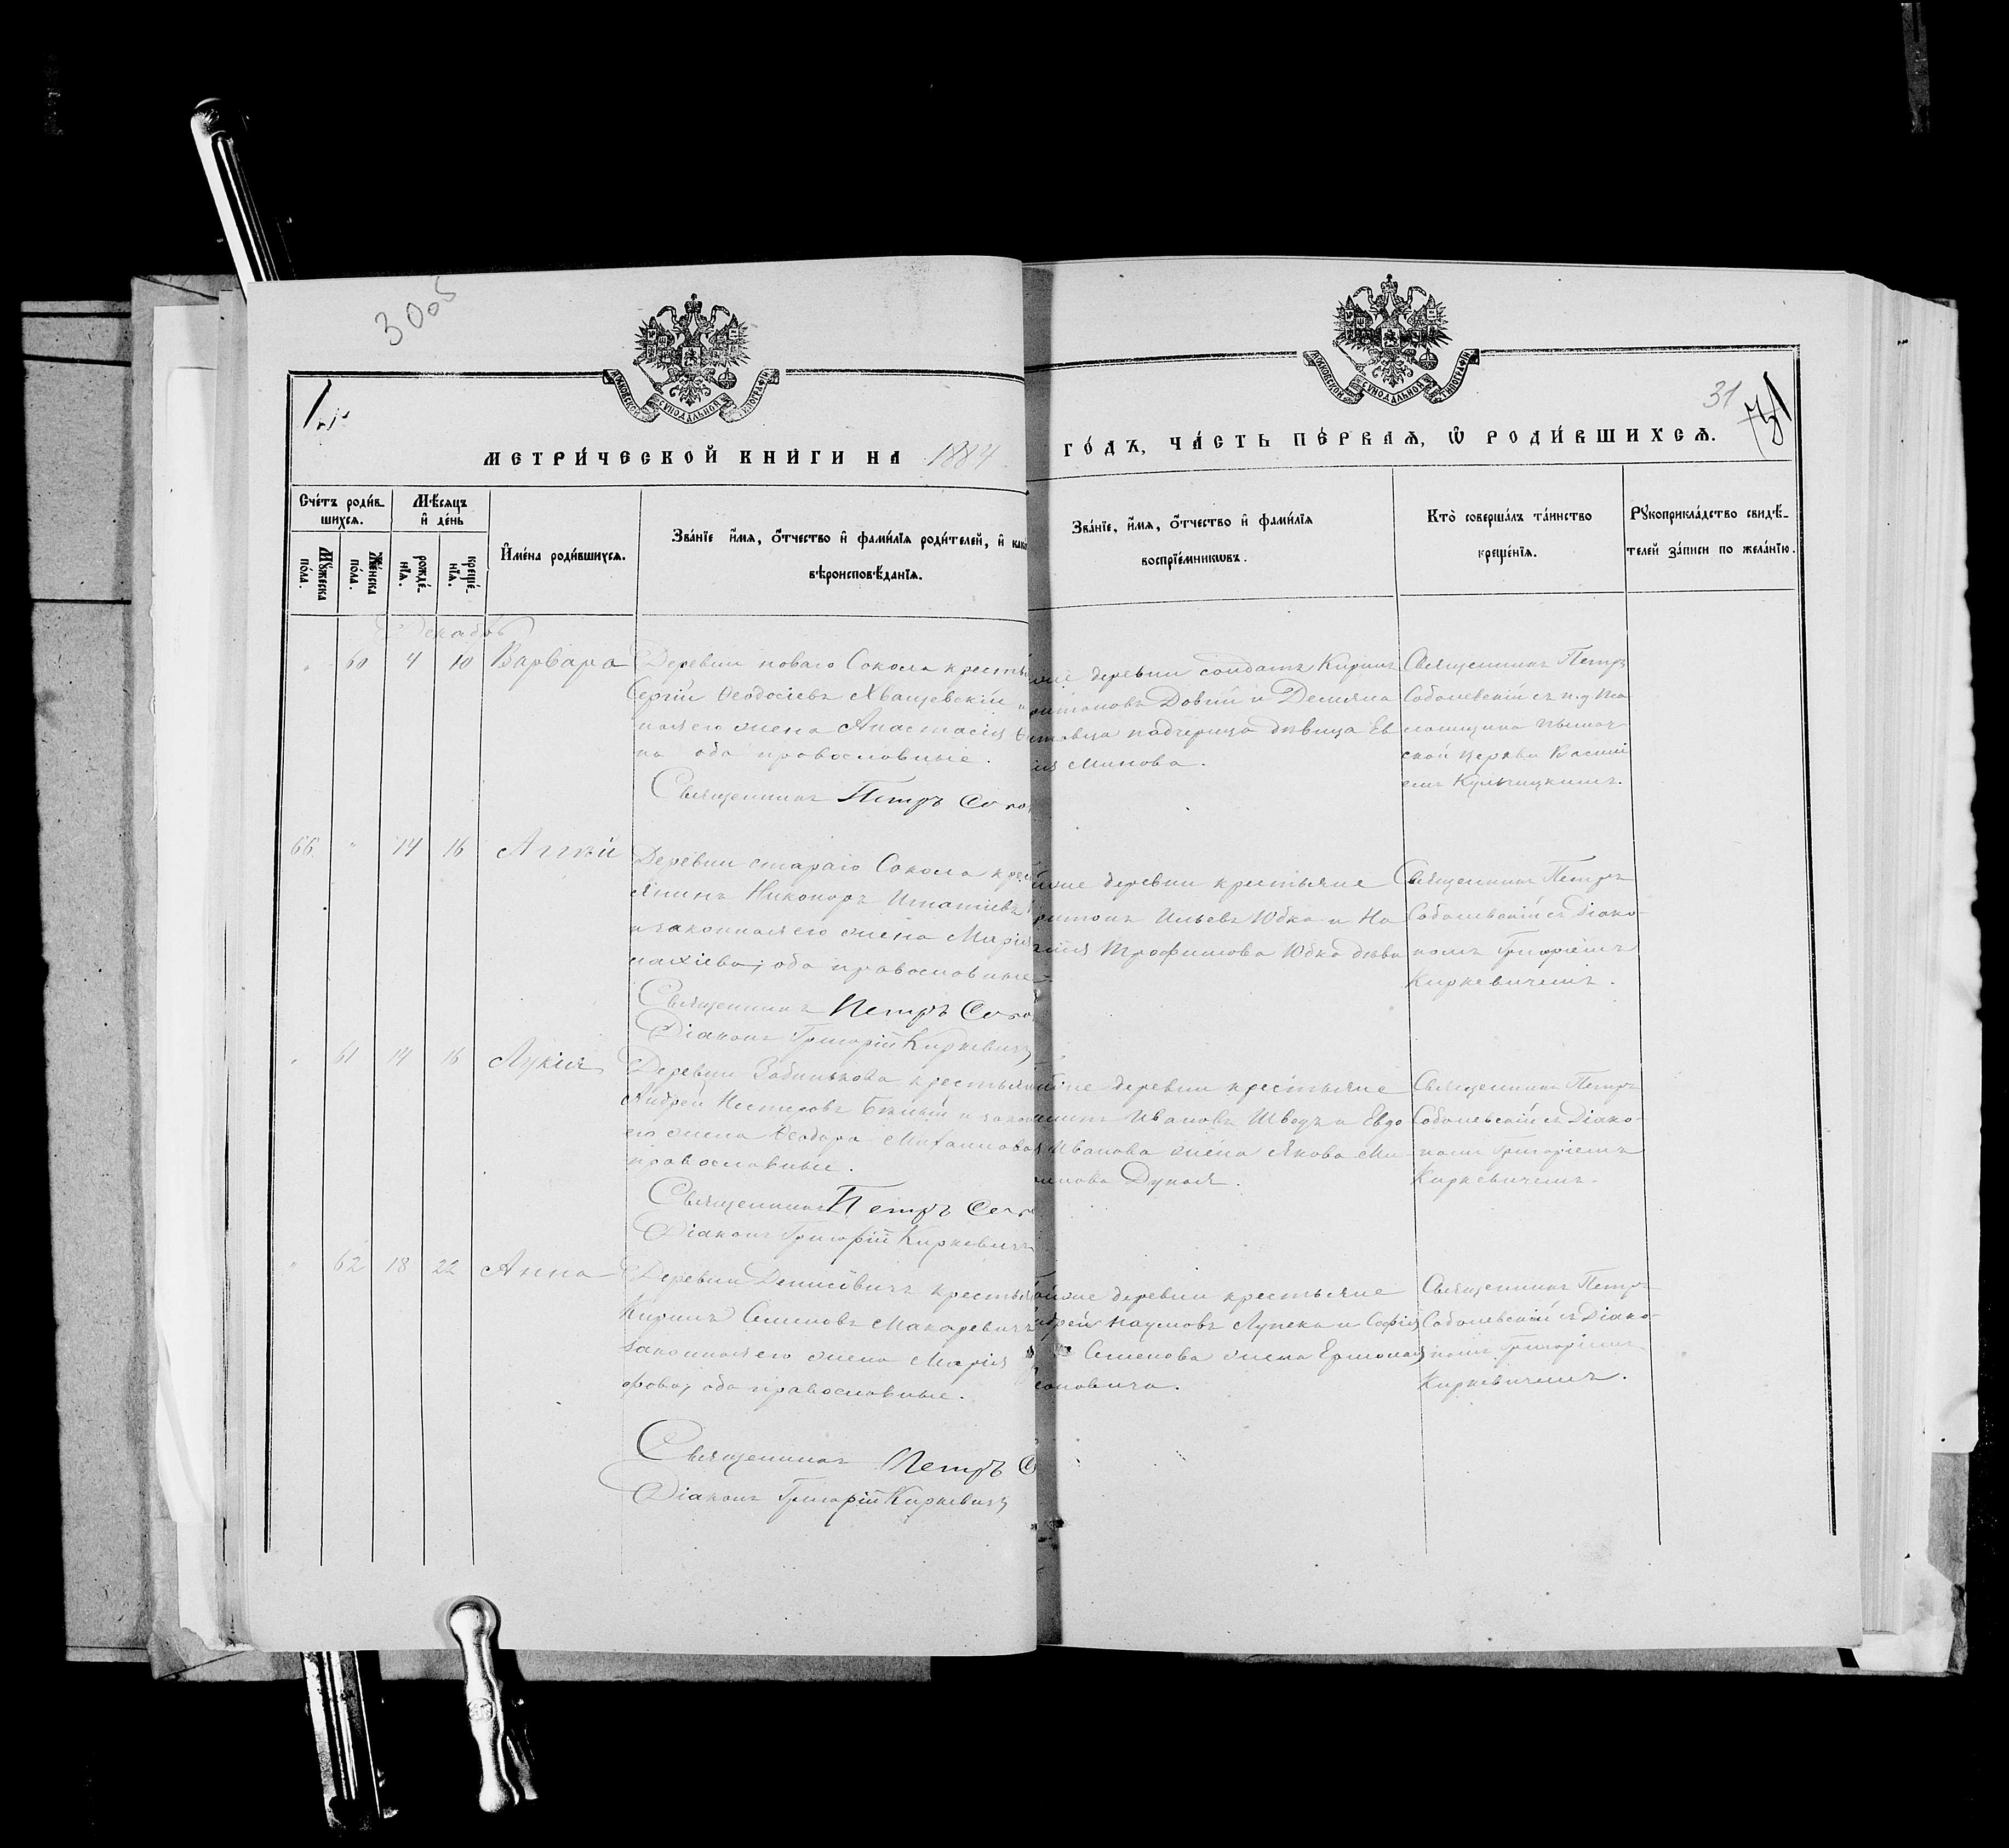 30об
31
МОСКОВСКОЙ СУНОДАЛЬНОЙ ТИПОГРАФІИ
МОСКОВСКОЙ СУНОДАЛЬНОЙ ТИПОГРАФІИ
МЕТРИ́ЧЕСКОЙ КНИ́ГИ НА 1884 ГО́ДЪ, ЧА́СТЬ ПЕ́РВАѦ, Ѽ РОДИ́ВШИХСѦ.
Сче́тъ роди́в-
шихсѧ.
Мѣ́сѧцъ
и҆ де́нь
Мꙋ́жеска
по́ла.
Же́нска
по́ла.
рожде́-
нїѧ.
креще́-
нїѧ.
И҆мена̀ роди́вшихсѧ.
Зва́нїе и҆́мѧ, ѻ҆́тчество и҆ фами́лїѧ роди́телей, и҆ како
вѣроисповѣ́данїѧ.
Зва́нїе, и҆́мѧ, ѻ҆́тчество и҆ фами́лїѧ
воспрїе́мникѡвъ.
Кто̀ соверша́лъ та́инство
креще́нїѧ.
Рꙋкоприкла́дство свидѣ́-
телей за́писи по жела́нїю.
Декабрь
" 60 4 10 Варвара
Деревни новаго Сокола кресть
Сергій Ѳеодосіевъ Хващевскій и
ная его жена Анастасія
на оба православные.
Священникъ Петръ Со
деревни солдатъ Кирилъ
Довгій и Демьяна
падчерица дѣвица Ев
Минова.
Священникъ Петръ
Соболевскій съ и. д.
церкви Васили
емъ Кульчицкимъ.
66 " 14 16 Аггей
Деревни стараго Сокола крес
янинъ Никоноръ Игнатіевъ
и законная его жена Марія
оба православные
Священникъ Петръ Со
Діаконъ Григорій Киркевичъ
деревни крестьяне
Ильевъ Юбко и На
Трофимова Юбко дѣви
Священникъ Петръ
Соболевскій съ Діако-
номъ Григоріемъ
Киркевичемъ.
" 61 14 16 Лукія
Деревни крестьян
Андрей Нестеровъ Бѣлый и закон
его жена Ѳеодора Михаилова
православные.
Священникъ Петръ Со
Діаконъ Григорій Киркевичъ
деревни крестьяне
Ивановъ Шведъ и Евдо
Иванова жена Якова Ми
Дуная.
Священникъ Петръ
Соболевскій съ Діако-
номъ Григоріемъ
Киркевичемъ.
" 62 18 22 Анна
Деревни Денисевичъ кресть
Кирилъ Семеновъ Макаревичъ
законная его жена Марія
фова, оба православные.
Священникъ Петръ С
Діаконъ Григорій Киркевичъ
деревни крестьяне
Наумовъ Лупека и Софія
Семенова жена Ермолая
Священникъ Петръ
Соболевскій съ Діако-
номъ Григоріемъ
Киркевичемъ.